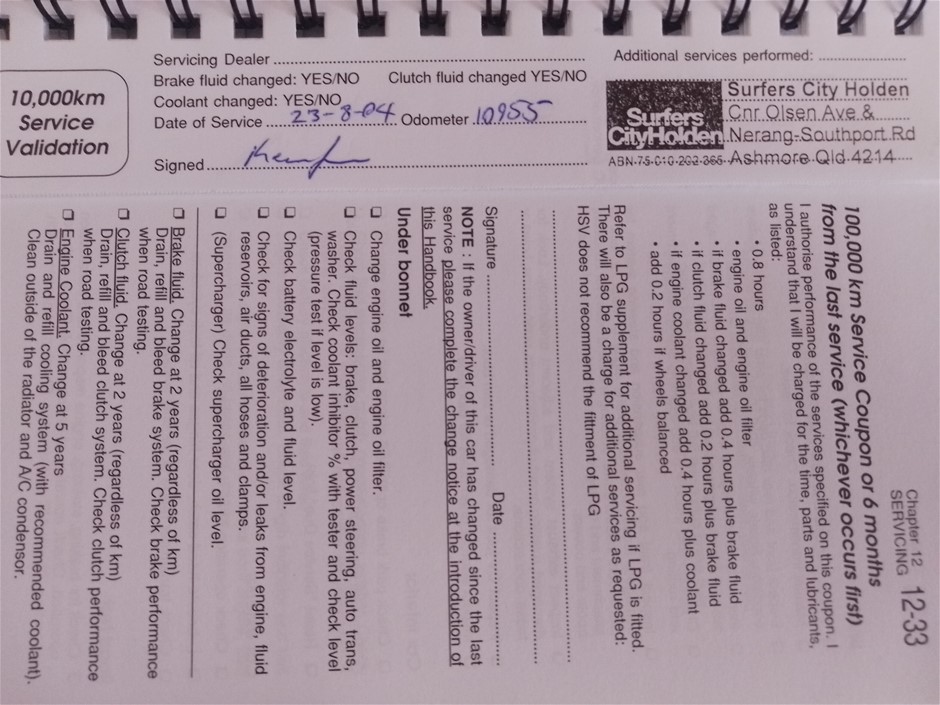 10,000km
Service
Validation
Servicing Dealer
Brake fluid changed: YES/NO Clutch fluid changed YES/NO
Coolant changed: YES/NO
Date of Service 23-8-04 Odometer 10955
Signed
Additional services performed:
Surfers
CityHolden
Surfers City Holden
Cnr Olsen Ave &
Nerang-Southport Rd
ABN 75 010 202 365 Ashmore Qld 4214
Chapter 12
SERVICING 12-33
100,000 km Service Coupon or 6 months
from the last service (whichever occurs first)
I authorise performance of the services specified on this coupon. I
understand that I will be charged for the time, parts and lubricants,
as listed:
• 0.8 hours
• engine oil and engine oil filter
• if brake fluid changed add 0.4 hours plus brake fluid
• if clutch fluid changed add 0.2 hours plus brake fluid
• if engine coolant changed add 0.4 hours plus coolant
• add 0.2 hours if wheels balanced
Refer to LPG supplement for additional servicing if LPG is fitted.
There will also be a charge for additional services as requested:
HSV does not recommend the fittment of LPG
Signature Date
NOTE : If the owner/driver of this car has changed since the last
service please complete the change notice at the introduction of
this Handbook.
Under bonnet
❑ Change engine oil and engine oil filter.
❑ Check fluid levels: brake, clutch, power steering, auto trans,
washer. Check coolant inhibitor % with tester and check level
(pressure test if level is low).
❑ Check battery electrolyte and fluid level.
❑ Check for signs of deterioration and/or leaks from engine, fluid
reservoirs, air ducts, all hoses and clamps.
❑ (Supercharger) Check supercharger oil level.
❑ Brake fluid. Change at 2 years (regardless of km)
Drain, refill and bleed brake system. Check brake performance
when road testing.
❑ Clutch fluid. Change at 2 years (regardless of km)
Drain, refill and bleed clutch system. Check clutch performance
when road testing.
❑ Engine Coolant. Change at 5 years
Drain and refill cooling system (with recommended coolant).
Clean outside of the radiator and A/C condensor.